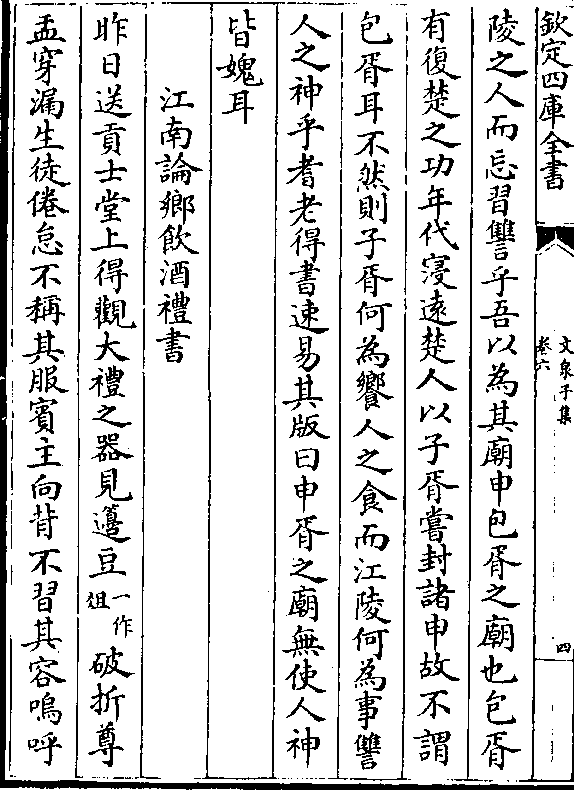 欽定四庫全書
文泉子集
卷六
四
陵之人而忘習讐乎吾以為其廟申包胥之廟也包胥
有復楚之功年代寖遠楚人以子胥嘗封諸申故不謂
包胥耳不然則子胥何為饗人之食而江陵何為事讐
人之神乎耆老得書速易其版曰申胥之廟無使人神
皆媿耳
江南論鄉飲酒禮書
昨日送貢士堂上得觀大禮之器見籩豆一作俎破折尊
盂穿漏生徒倦怠不稱其服賓主向背不習其容嗚呼